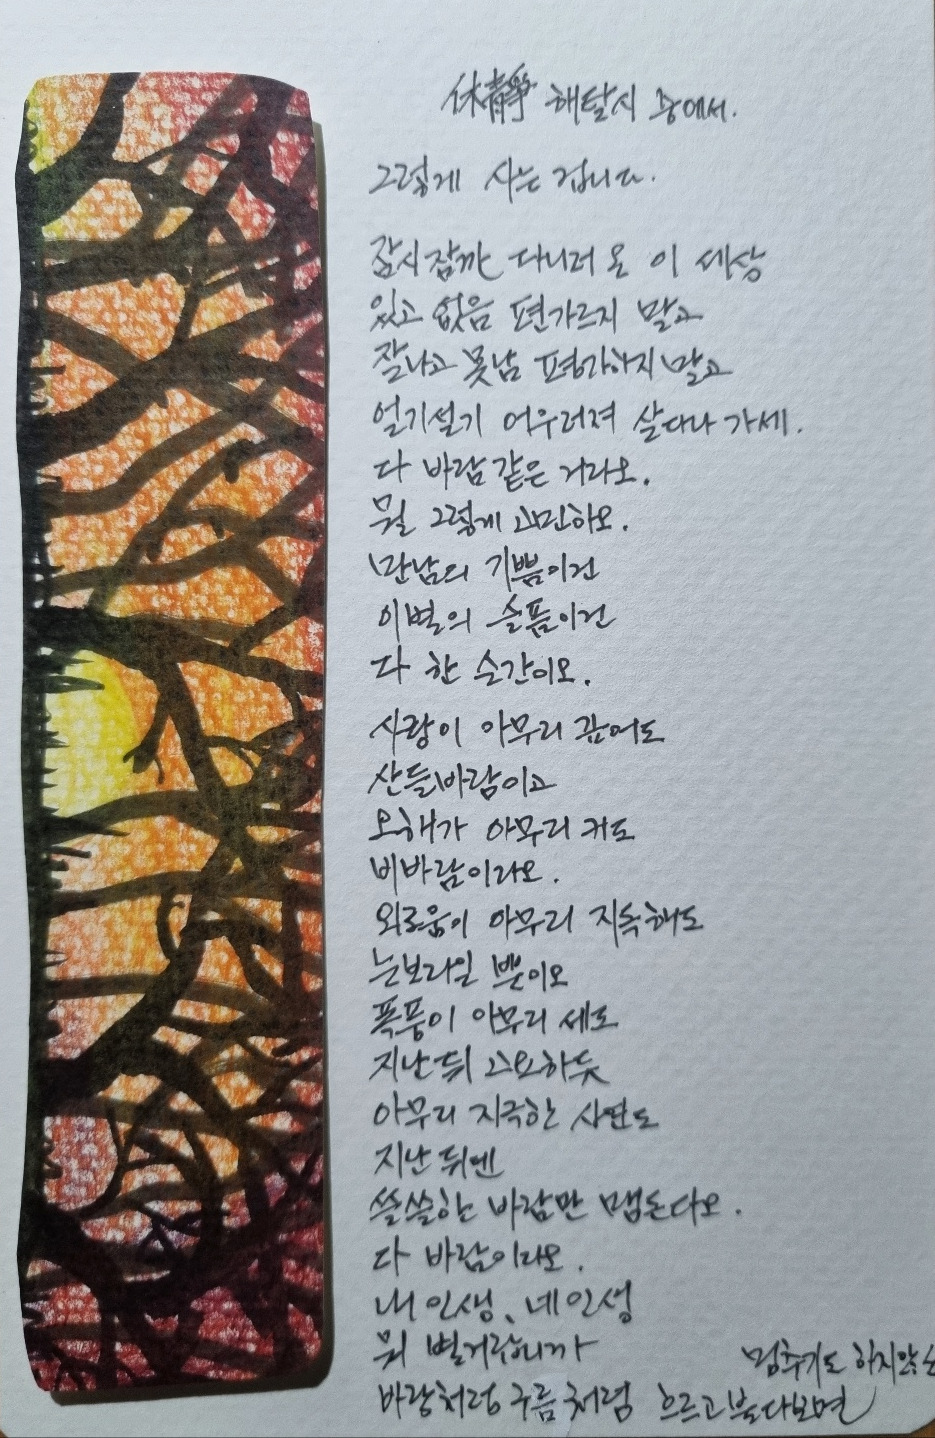 休靜 해탈시 중에서.
그렇게 사는 겁니다.
잠시 잠깐 다니러 온 이 세상
있고 없음 편가르지 말고
잘나고 못남 평가하지 말고
얼기설기 어우러져 살다나 가세.
다 바람 같은 거라오.
뭘 그렇게 고민하오.
만남의 기쁨이건
이별의 슬픔이건
다 한 순간이오.
사랑이 아무리 깊어도
산들바람이고
오해가 아무리 커도
비바람이라오.
외로움이 아무리 지독해도
눈보라일 뿐이오
폭풍이 아무리 세도
지난 뒤 고요하듯
아무리 지극한 사연도
지난 뒤엔
쓸쓸한 바람만 맴돈다오.
다 바람이라오.
내 인생, 네 인생
뭐 별거랍니까
바람처럼 구름처럼 흐르고 불다보면
멈추기도 하지않